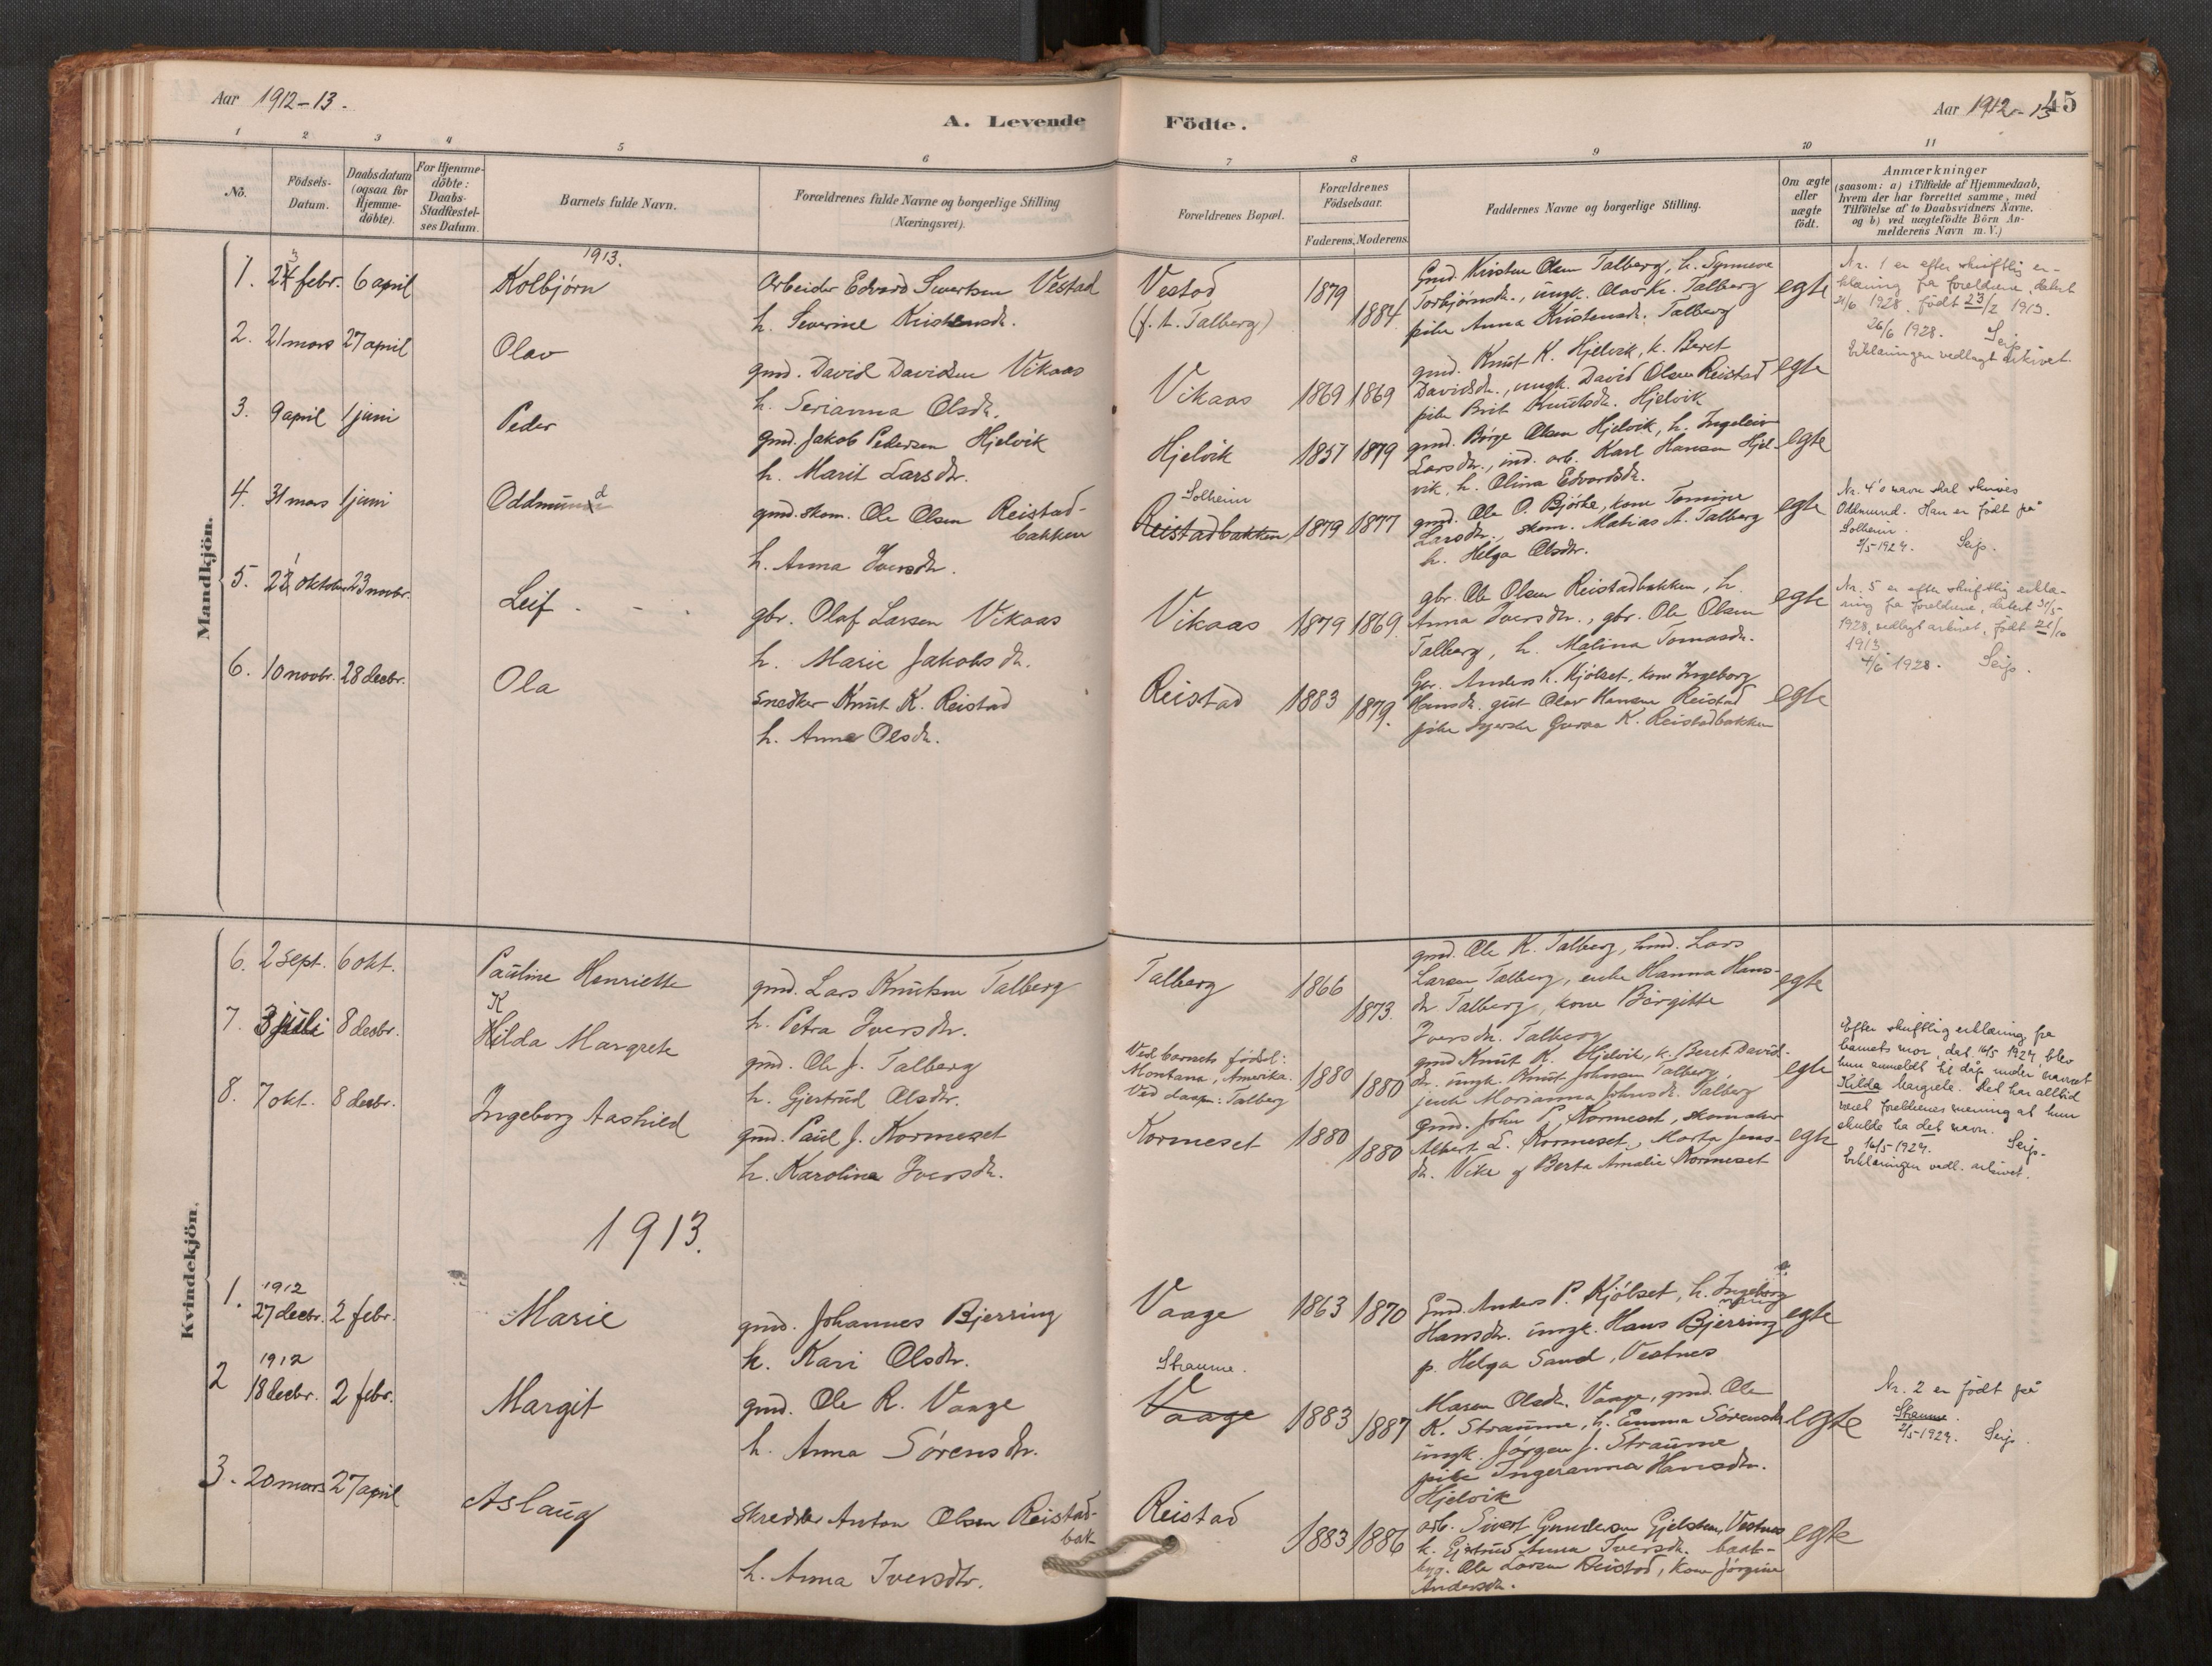 Aar 1912-13.
A. Levende Födte.
Aar 1912-13
45
1
2
3
4
5
6
7
8
9
10
11
No.
Födsels-
Datum.
Daabsdatum
(ogsaa for
Hjemme-
döbte).
For Hjemme-
döbte:
Daabs-
Stadfæstel-
ses Datum.
Barnets fulde Navn.
Forældrenes fulde Navne og borgerlige Stilling
(Næringsvei).
Forældrenes Bopæl.
Forældrenes
Födselsaar.
Faderens. Moderens.
Faddernes Navne og borgerlige Stilling.
Om ægte
eller
uægte
födt.
Anmærkninger
(saasom: a) i Tilfælde af Hjemmedaab,
hvem der har forrettet samme, med
Tilföielse af to Daabsvidners Navne.
og b) ved uægtefödte Börn An-
melderens Navn m. V.)
Mandkjön.
1913.
1. 24 3 febr. 6 april
Kolbjørn
Arbeider Edvard Sivertsen Vestad
h. Severine Kristensdr.
Vestad
(f. t. Talberg)
1879
1884
Gmd. Kristen Olsen Talberg, h. Synneve
Torbjörnsdr., ungk. Olav Kr. Talberg
pike Anna Kristensdr. Talberg
egte
Nr. 1 er efter skriftlig er-
klæring fra foreldrene, datert
21/6 1928, født 23/2 1913.
26/6 1928. Seip.
Erklæringen vedlagt arkivet.
2. 21 mars 27 april
Olav
gmd. David Davidsen Vikaas
h. Serianna Olsdr.
Vikaas
1869 1869
gmd. Knut K. Hjelvik, k. Beret
Davidsdr., ungk. David Olsen Reistad
pike Brit Knutsdr. Hjelvik
egte
3. 9 april 1 juni
Peder
gmd. Jakob Pedersen Hjelvik
h. Marit Larsdr.
Hjelvik
1857 1879
gmd. Börge Olsen Hjelvik, h. Ingeleiv
Larsdr., ind. arb. Karl Hansen Hjel-
vik, h. Olina Edvardsdr.
egte
4. 31 mars 1 juni
Oddmund
gmd. skom. Ole Olsen Reistad-
bakken
h. Anna Iversdr.
Solheim
Reistadbakken
1879 1877
gmd. Ole O. Bjórke, kone Tomine
Larsdr., skom. Matias A. Talberg
h. Helga Olsdtr.
egte
Nr. 4's navn skal skrives
Oddmund. Han er født på
Solheim.
9/5-1924. Seip.
5. 22 1 oktober 23 novbr.
Leif
gbr. Olaf Larsen Vikaas
h. Marie Jakobsdr.
Vikaas
1879 1869.
gbr. Ole Olsen Reistadbakken, h.
Anna Iversdr., gbr. Ole Olsen
Talberg, h. Malina Tomasdr.
egte
Nr. 5 er efter skriftlig erklæ-
ring fra foreldrene, datert 31/5-
1928, vedlagt arkivet, født 21/10
1913.
4/6 1928. Seip.
6. 10 novbr. 28 decbr.
Ola
Snedker Knut K. Reistad
h. Anne Olsdr.
Reistad
1883 1879.
Gbr. Anders K. Kjölset, kone Ingeborg
Hansdr. gut Olav Hansen Reistad
pike Gurva K. Reistadbakken
egte
Kvindekjön.
6. 2 sept. 6 okt.
Pauline Henriette
gmd. Lars Knutsen Talberg
h. Petra Iversdr.
Talberg
1866
1873.
gmd. Ole K. Talberg, Lars
Larsen Talberg, enke Hanna Hans-
dr. Talberg, kone Birgitte
Iversdr. Talberg
egte
7. 3 juli 8 decbr.
K
Hilda Margrete
gmd. Ole J. Talberg
h. Gjertrud Olsdtr.
Ved barnets fødsl:
Montana, Amerika.
Ved daap: Talberg
1880
1880
gmd Knut K. Hjelvik, k. Beret David-
dr. ungk. Knut Johnsen Talberg,
jente Marianna Johnsdr. Talberg
egte
Efter skriftlig erklæring fra
barnets mor, dat. 16/5 1924, blev
hun anmeldt til dåp under navnet
Kilda Margrete. Det har alltid
været foreldrenes mening at hun
skulde ha det navn.
16/5-1924. Seip.
Erklæringen vedl. arkivet.
8. 7 okt. 8 decbr.
Ingeborg Aashild
gmd. Paul J. Kormeset
h. Karolina Iversdr.
Kormeset
1880
1880
Gmd. John P. Kormeset, skomaker
Albert L. Kormeset, Marta Jens-
dr. Vike og Berta Amalie Kormeset
egte
1913.
1. 1912
27 decbr. 2 febr.
Marie
gmd. Johannes Bjerring
k. Kari Olsdtr.
Vaage
1863 1870
Gmd. Anders P. Kjölset, h. Ingeborg
Hansdtr. ungk. Hans Bjerring
p. Helga Sand, Vestnes
egte
2 1912
18 decbr. 2 febr.
Margit
gmd. Ole R. Vaage
h. Anna Sörensdtr.
Straume.
Vaage
1883 1887
Maren Olsdr. Vaage, gmd. Ole
K. Straume, h. Emma Sörensdr
ungk. Jörgen J. Straume
pike Ingeranna Hansdtr.
Hjelvik
egte
Nr. 2 er født på
Straume.
9/5-1924. Seip.
3. 20 mars 27 april
Aslaug
Skredder Anton Olsen Reistad-
bak
h. Anna Iversdtr.
Reistad
1883 1886
arb. Sivert Gundersen Gjelsten, Vestnes
k. Gjertrud Anna Iversdr. baat-
byg. Ole Larsen Reistad, kone Jörgine
Andersdr.
egte